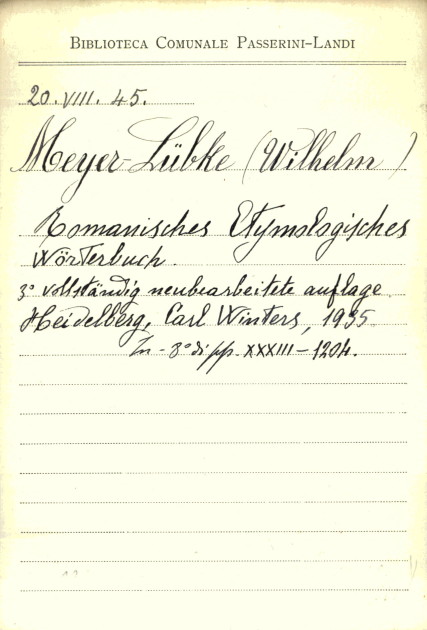 BIBLIOTECA COMUNALE PASSERINI-LANDI
20. VIII. 45.
Meyer-Lübke (Wilhelm)
Romanisches Etymologisches
Wörterbuch.
3° vollständig neubearbeitete auflage
Heidelberg, Carl Winters, 1935
In - 8° di pp. XXXIII - 1204.